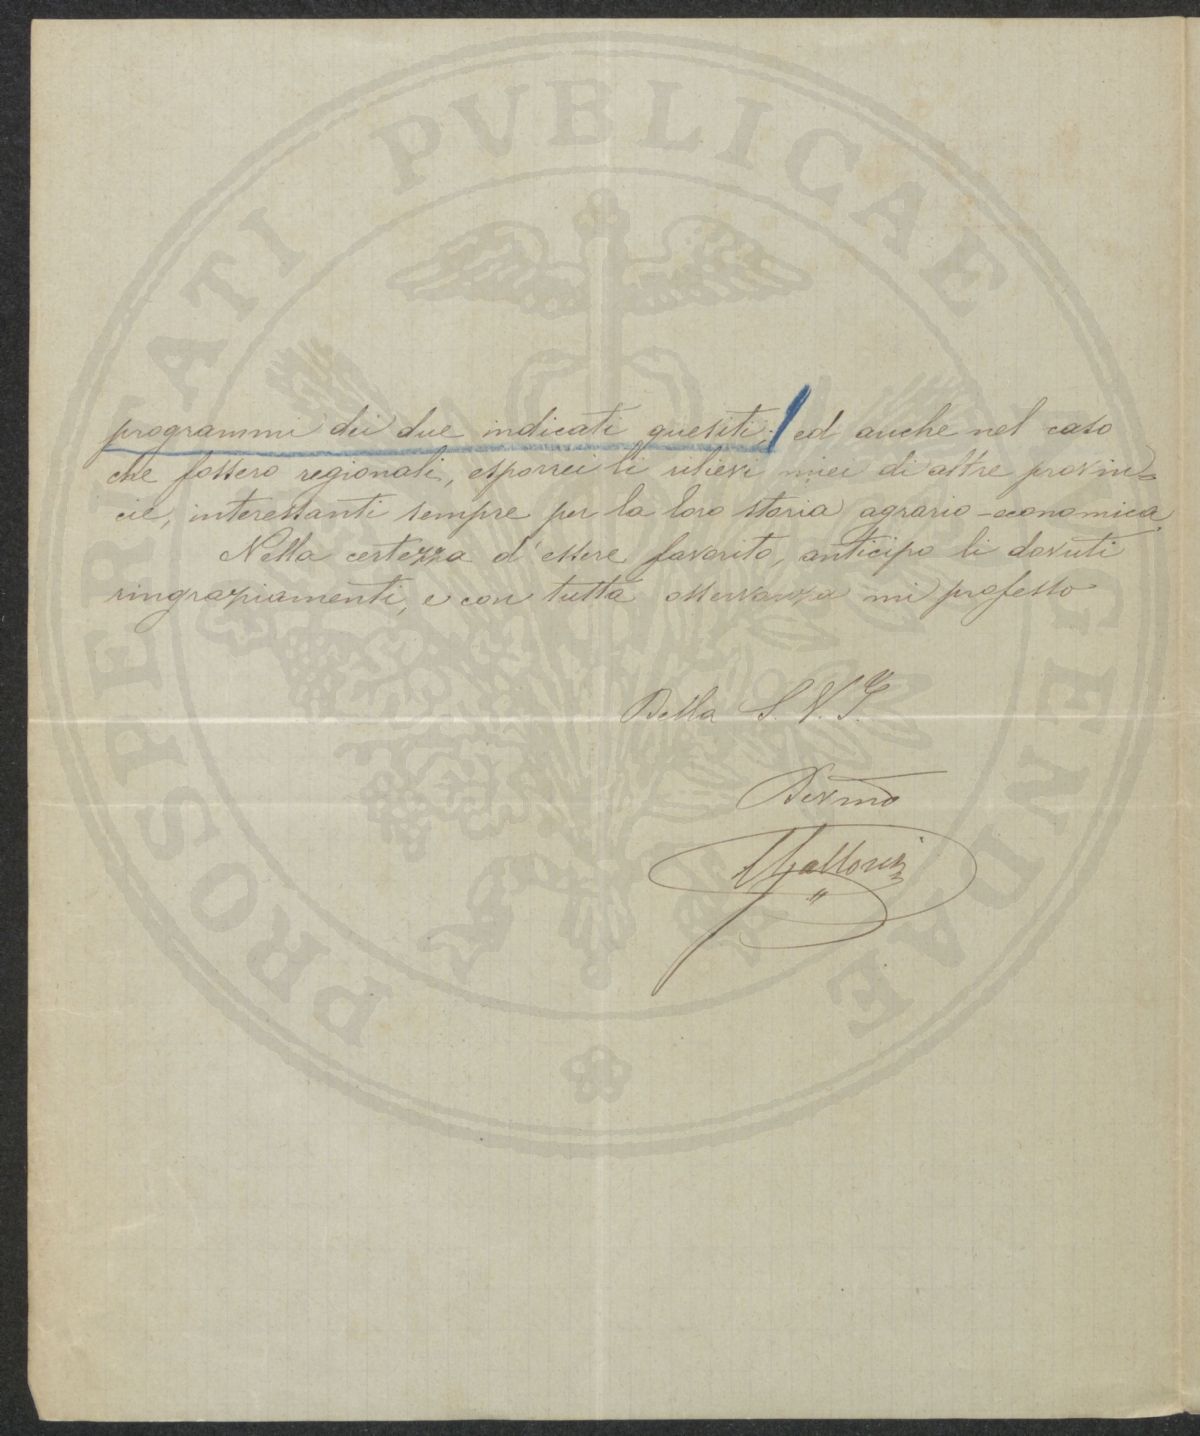 programmi dei due indicati quesiti; ed anche nel caso
che fossero regionali, esporrei li rilievi miei di altre provin=
cie, interessanti sempre per la loro storia agrario-economica.
Nella certezza d'essere favorito, anticipo li dovuti
ringraziamenti, e con tutta osservanza mi professo
Della S. V. Ill
Devmo
PROSPERITATI PVBLICAE AVGENDAE